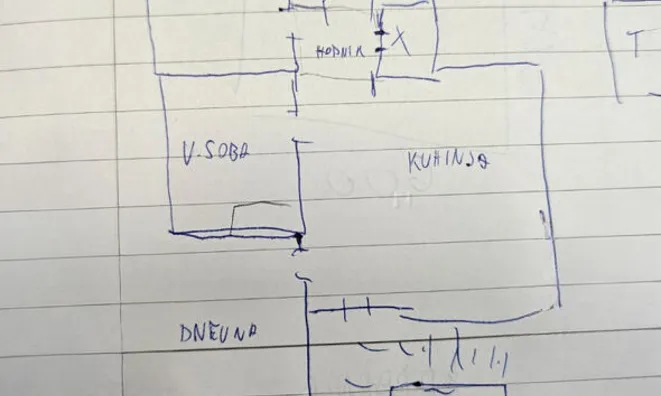 HODNIK X
T
V.SOBA
KUHINJA
DNEVNA